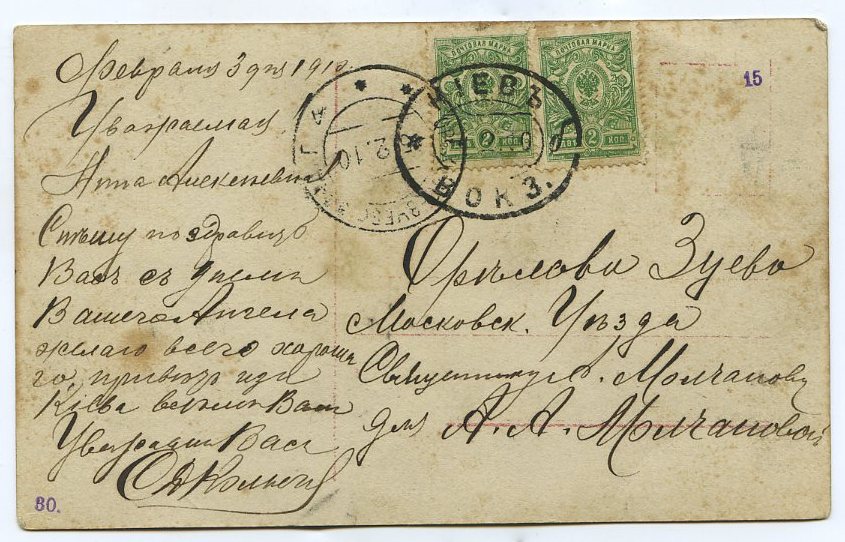 Февраля 3 дня 1910
Уважаемая
Анна Алексеевна
Спѣшу поздравить
Васъ съ Днемъ
Вашего Ангела
желаю всего хороша
го, привѣтъ изъ
Кіева всѣмъ Вамъ
Уважающій Васъ
15
ПОЧТОВАЯ МАРКА
ПОЧТОВАЯ МАРКА
2 КОП.
ДВѢ 2 КОП.
КІЕВЪ
ВОКЗ.
2.10
Орѣхово Зуево
Московск. Уѣзда
Священнику о. Молчанову
для А. А. Молчановой
80.